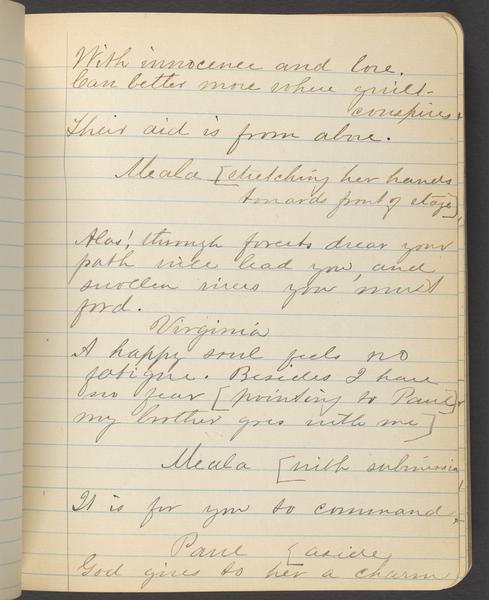 With innocence and love.
Can better move where guilt
conspires
Their aid is from above.
Meala [stretching her hands
towards front of stage]
Alas! through forests drear your
path will lead you, and
swollen rivers you must
ford.
Virginia
A happy soul feels no
fatigue. Besides I have
no fear [pointing to Paul]
my brother goes with me]
Meala [with submissio
It is for you to command.
Paul [aside
God gives to her a charm